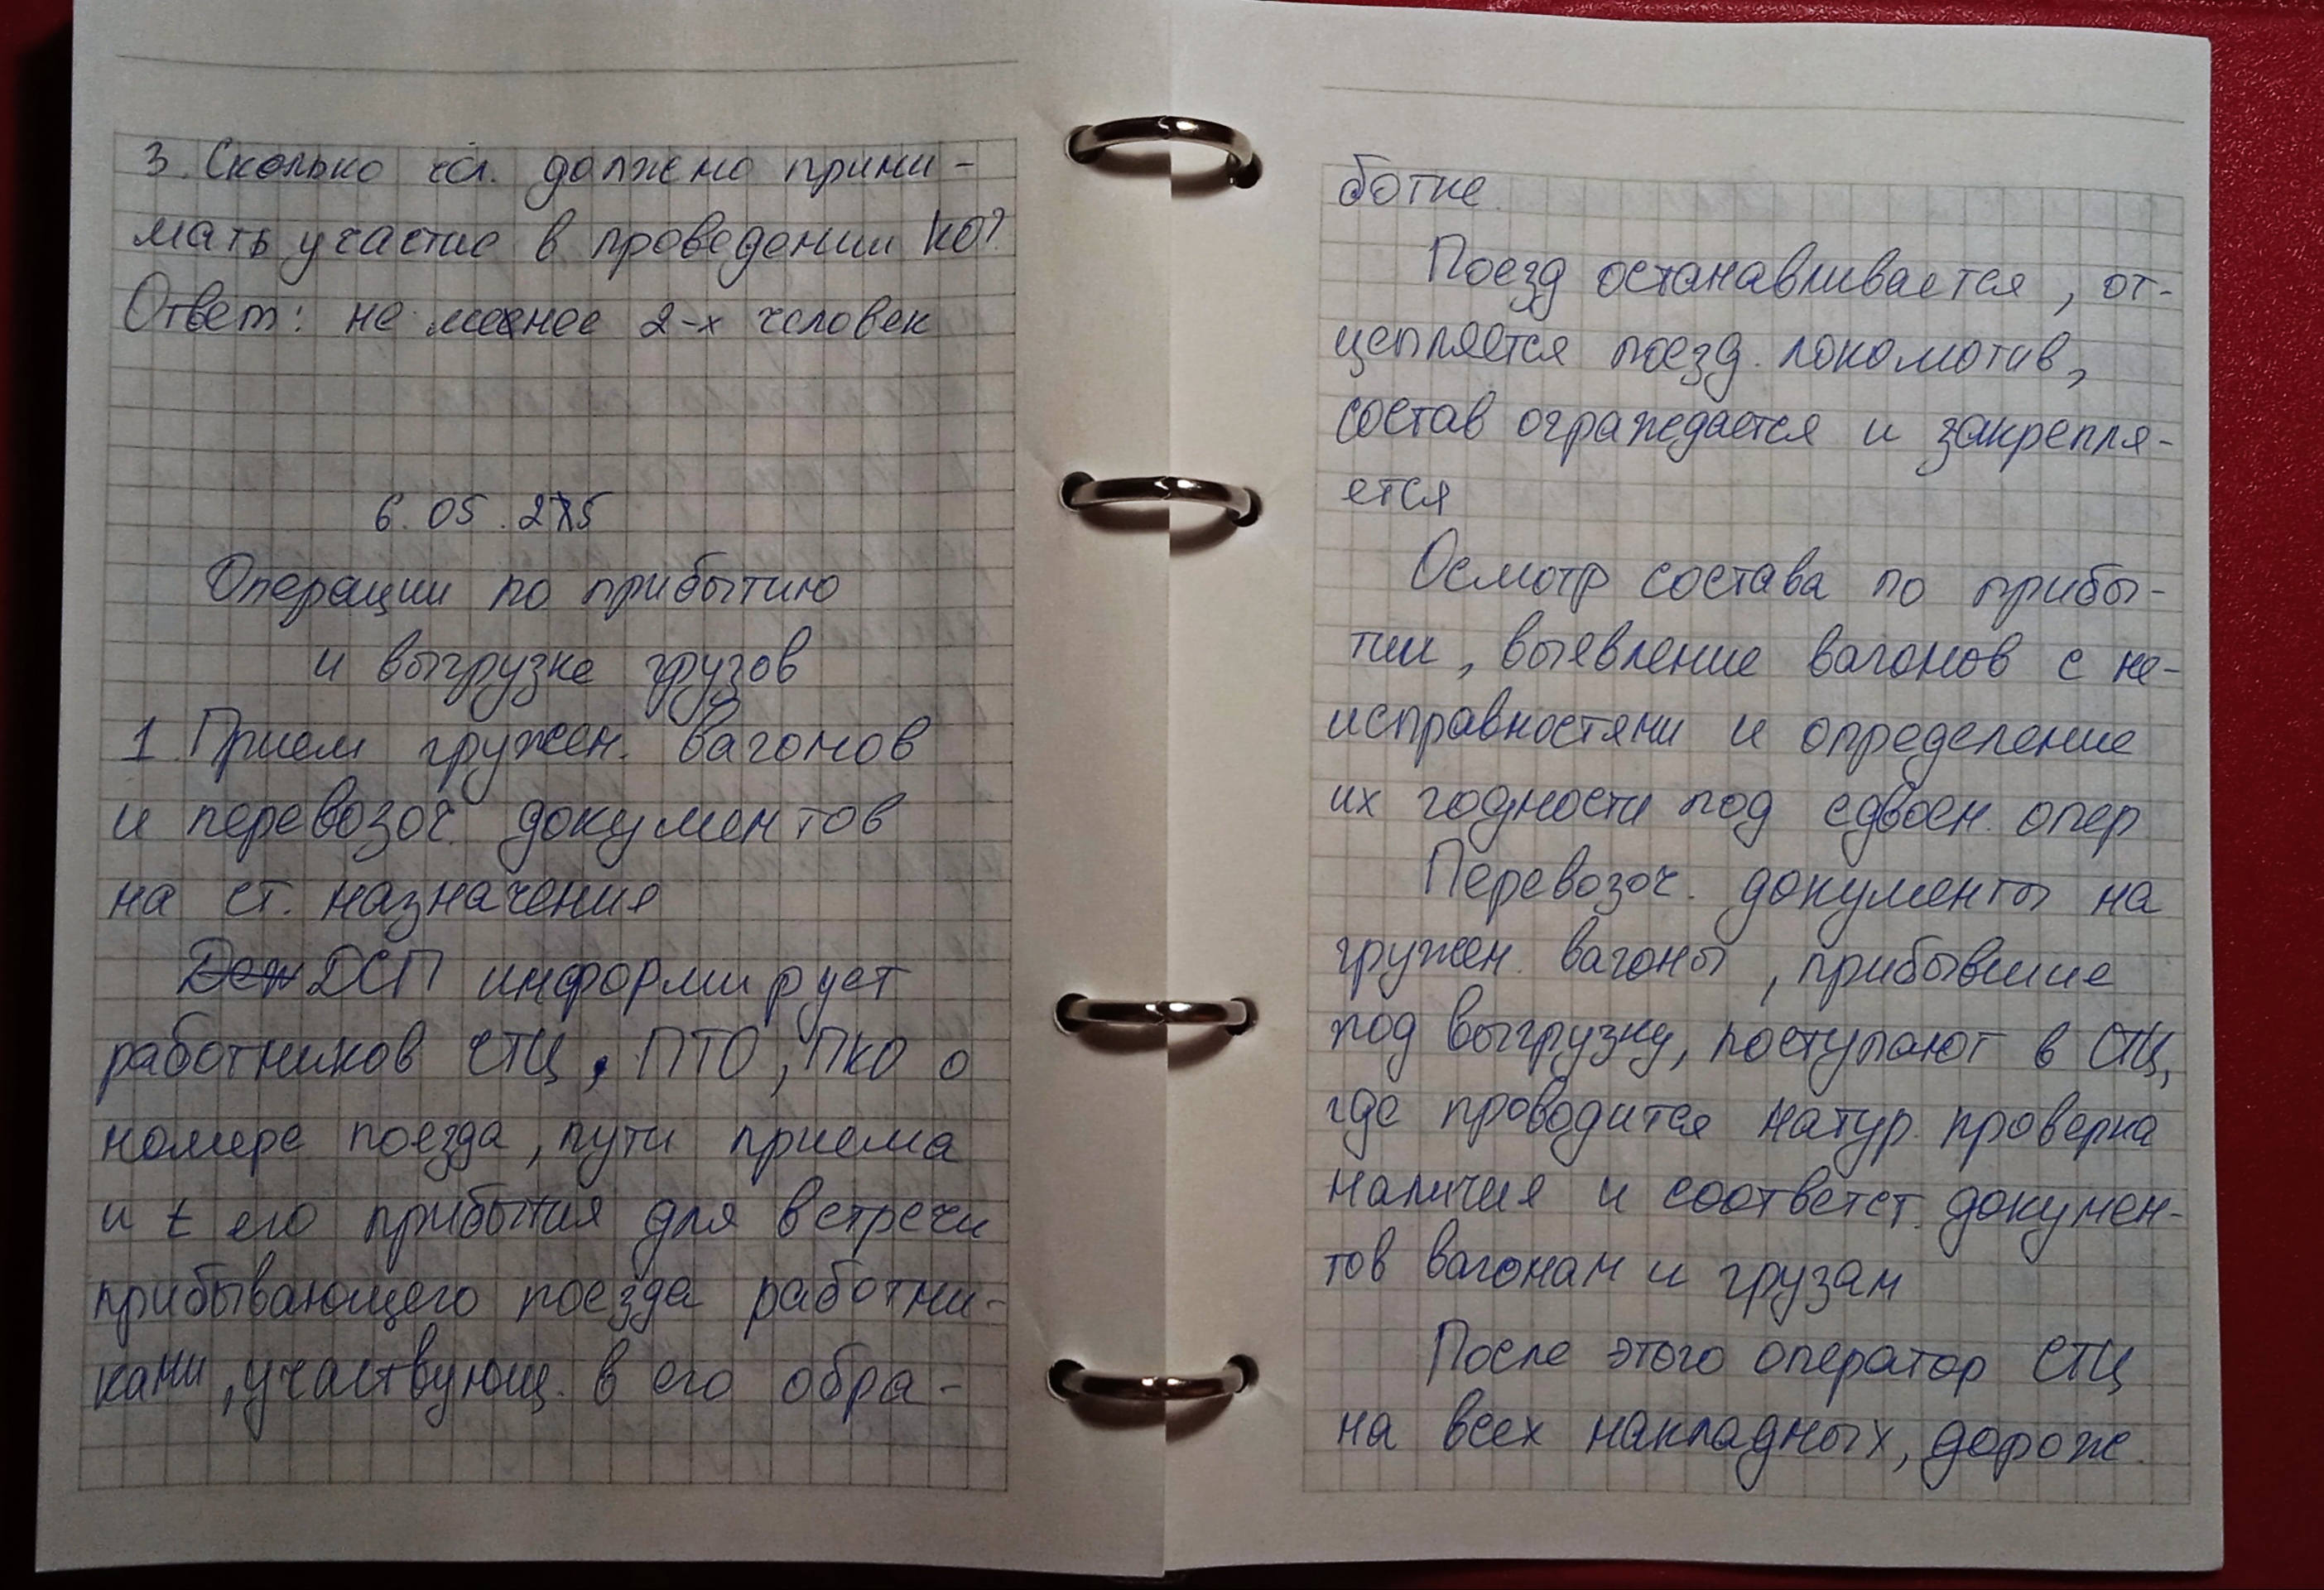 3. Сколько чел. должено прини-
мать участие в проведении КО?
Ответ: не менее 2-х человек
6.05.25
Операции по прибытию
и выгрузке грузов
1. Прием гружен. вагонов
и перевозоч. документов
на ст. назначения
ДСП информирует
работников СТЦ, ПТО, ПКО о
номере поезда, пути приема
и t его прибытия для встречи
прибывающего поезда работни-
ками, участвующ. в его обра-
ботке.
Поезд останавливается, от-
цепляется поезд. локомотив,
состав ограждается и закрепля-
ется
Осмотр состава по прибы-
тии, выявление вагонов с не-
исправностями и определение
их годности под сдвоен. опер
Перевозоч. документы на
гружен. вагоны, прибывшие
под выгрузку, поступают в СТЦ,
где проводится натур. проверка
наличия и соответст. докумен-
тов вагонам и грузам
После этого оператор СТЦ
на всех накладных, дорож.